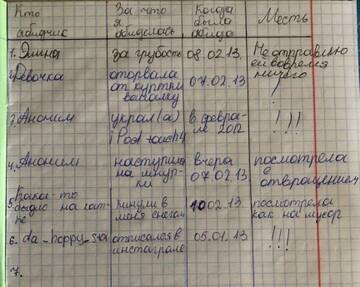 Кто обидчик | За что я обиделась | Когда была обида | Месть
1. Элина | за грубость | 08.02.13 | Не отправляю ей вовремя ничего
2. Девочка | оторвала от куртки | 07.02.13 | !
3. Аноним | украл(а) iPod touchy | в феврале 2012 | !!!
4. Аноним | наступили на шнурки | вчера 07.02.13 | посмотрела с отвращением
5. Какое-то быдло на катке | кинули в меня снегом | 10.02.13 | посмотрела как на мусор
6. da_happy_ | отписался в инстаграме | 05.01.13 | !!!
7.